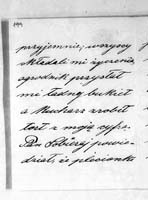 199
przyjemnie, wszyscy
składali mi życzenia,
ogrodnik przysłał
mi ładny bukiet
a kucharz zrobił
tort z moją cyfrą.
Pan Sobieraj powie-
dział, iż plecionka